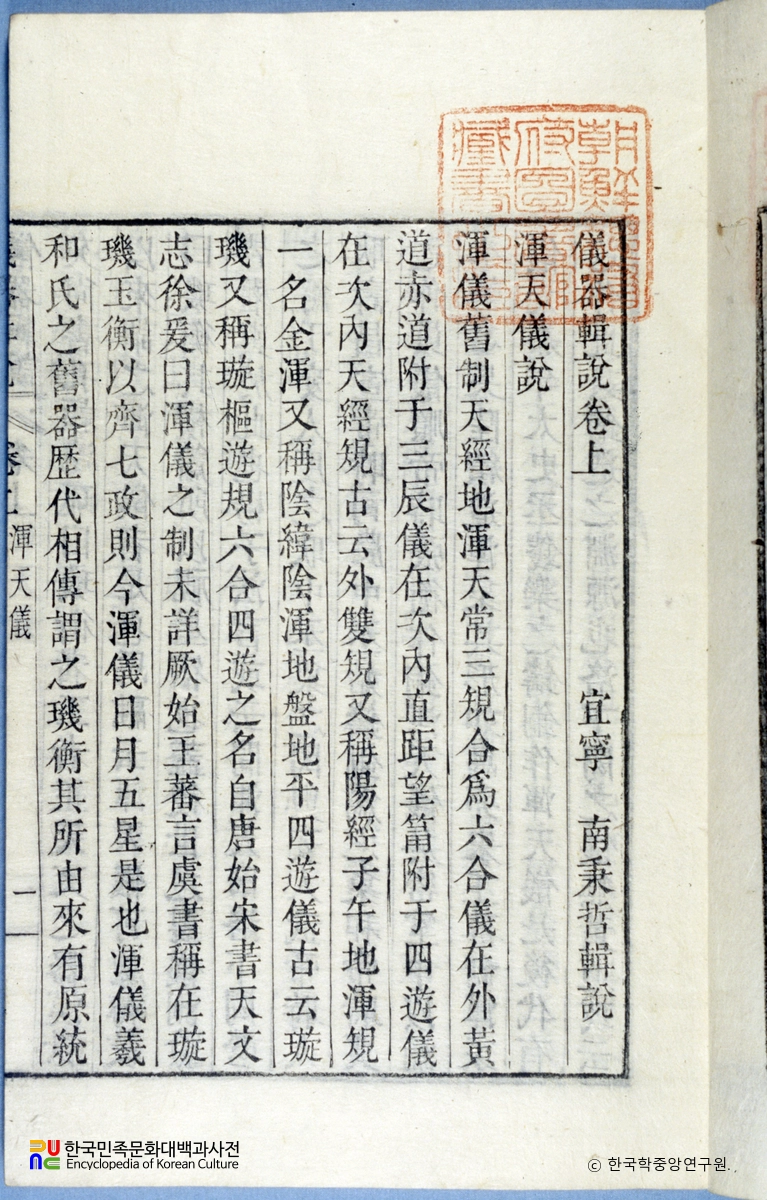 儀器輯說卷上
宜寧 南秉哲輯說
渾天儀說
渾儀舊制天經地渾天常三規合爲六合儀在外黃
道赤道附于三辰儀在次內直距望筩附于四遊儀
在次內天經規古云外雙規又稱陽經子午地渾規
一名金渾又稱陰緯陰渾地盤地平四遊儀古云璇
璣又稱璇樞遊規六合四遊之名自唐始宋書天文
志徐爰曰渾儀之制未詳厥始王蕃言虞書稱在璇
璣玉衡以齊七政則今渾儀日月五星是也渾儀羲
和氏之舊器歷代相傳謂之璣衡其所由來有原統
渾天儀
一
한국민족문화대백과사전
Encyclopedia of Korean Culture
ⓒ 한국학중앙연구원.